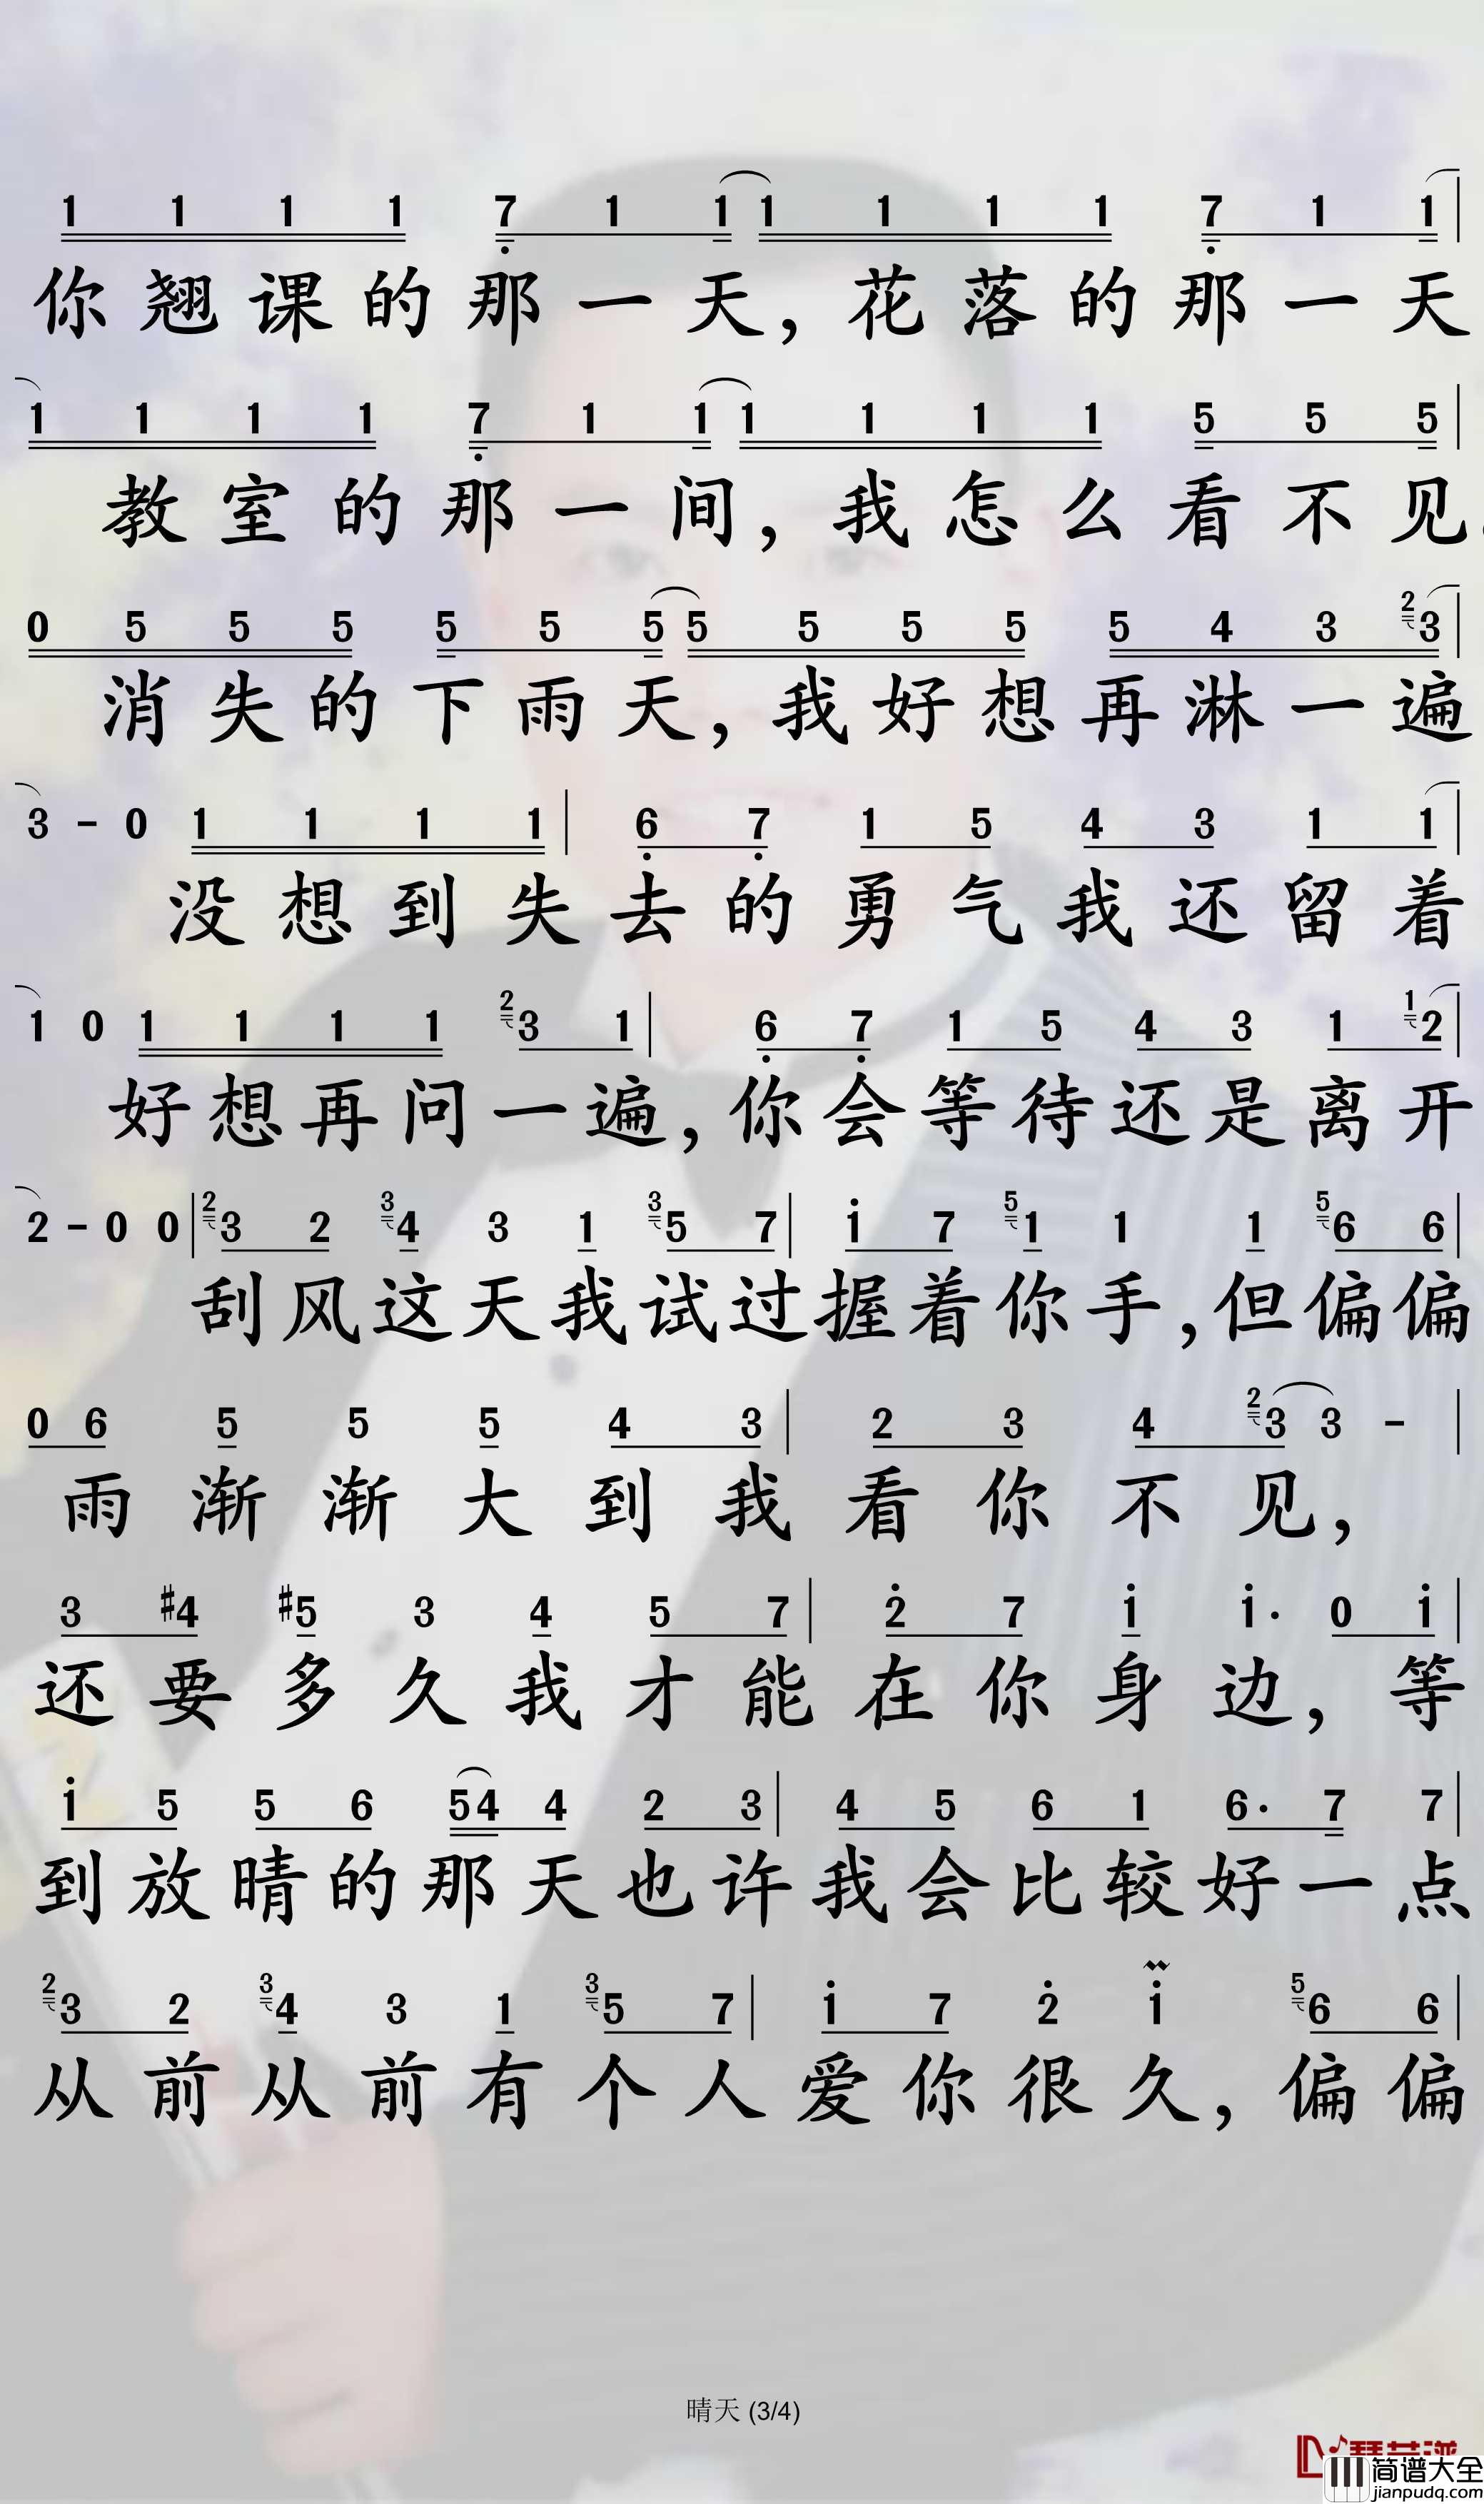 1 1 1 1 7 1 1 1 1 1 1 7 1 1
你翘课的那一天，花落的那一天
1 1 1 1 7 1 1 1 1 1 1 5 5 5
教室的那一间，我怎么看不见
0 5 5 5 5 5 5 5 5 5 5 5 4 3 2 3
消失的下雨天，我好想再淋一遍
3 - 0 1 1 1 1 | 6 7 1 5 4 3 1 1 |
没想到失去的勇气我还留着
1 0 1 1 1 1 2 3 1 | 6 7 1 5 4 3 1 1 2 |
好想再问一遍，你会等待还是离开
2 - 0 0 | 2 3 2 3 4 3 1 3 5 7 | i 7 5 1 1 1 5 6 6 |
刮风这天我试过握着你手，但偏偏
0 6 5 5 5 4 3 | 2 3 4 2 3 3 - |
雨渐渐大到我看你不见，
3 #4 #5 3 4 5 7 | 2 7 i i· 0 i |
还要多久我才能在你身边，等
i 5 5 6 5 4 4 2 3 | 4 5 6 1 6· 7 7 |
到放晴的那天也许我会比较好一点
2 3 2 3 4 3 1 3 5 7 | i 7 2 i 5 6 6 |
从前从前有个人爱你很久，偏偏
晴天 (3/4)
简谱大全
jianpudq.com